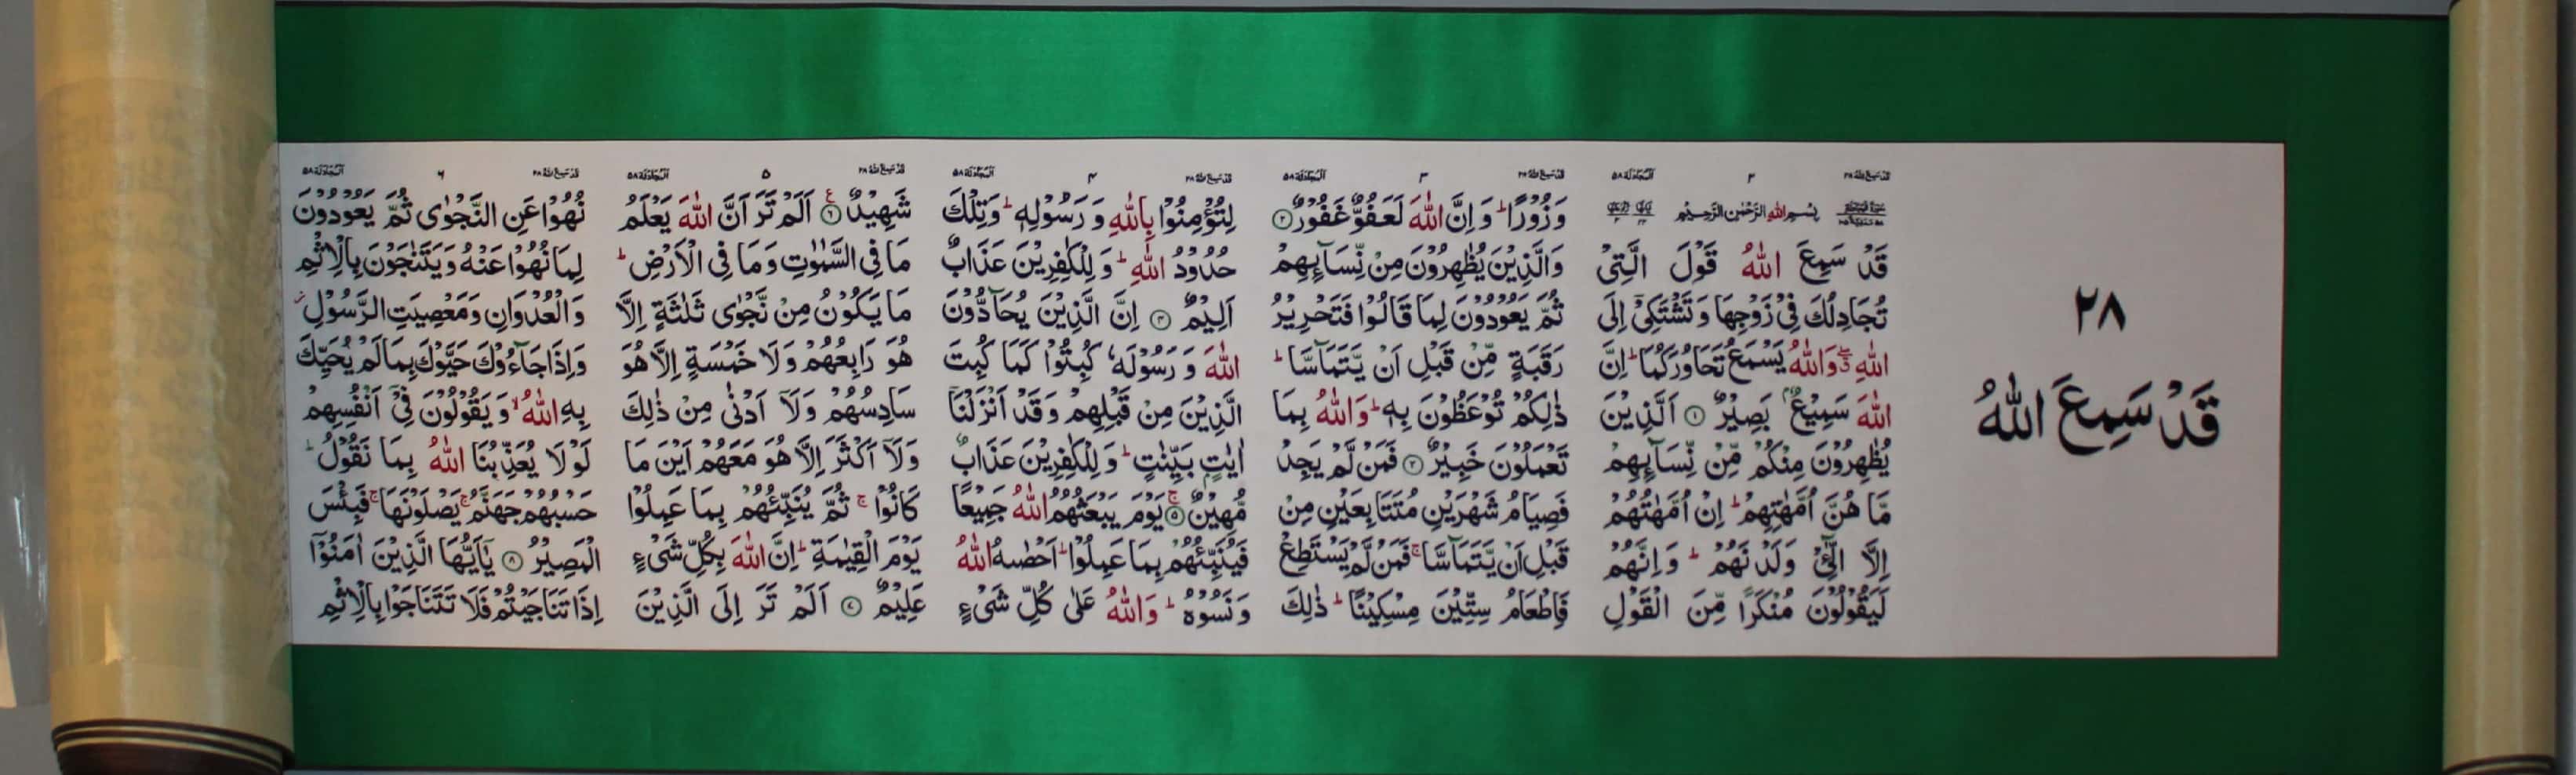 ٢٨
قَدْ سَمِعَ اللهُ
قد سمع الله ٢٨
٢
المجادلة ٥٨
بِسْمِ اللهِ الرَّحْمٰنِ الرَّحِيْمِ
قَدْ سَمِعَ اللهُ قَوْلَ الَّتِيْ
تُجَادِلُكَ فِيْ زَوْجِهَا وَتَشْتَكِيْٓ اِلَى
اللهِ ۖ وَاللهُ يَسْمَعُ تَحَاوُرَكُمَا ؕ اِنَّ
اللهَ سَمِيْعٌۢ بَصِيْرٌ ۝١ اَلَّذِيْنَ
يُظٰهِرُوْنَ مِنْكُمْ مِّنْ نِّسَآئِهِمْ
مَّا هُنَّ اُمَّهٰتِهِمْ ؕ اِنْ اُمَّهٰتُهُمْ
اِلَّا الّٰٓـِٔيْ وَلَدْنَهُمْ ؕ وَاِنَّهُمْ
لَيَقُوْلُوْنَ مُنْكَرًا مِّنَ الْقَوْلِ
قد سمع الله ٢٨
٣
المجادلة ٥٨
وَزُوْرًا ؕ وَاِنَّ اللهَ لَعَفُوٌّ غَفُوْرٌ ۝٢
وَالَّذِيْنَ يُظٰهِرُوْنَ مِنْ نِّسَآئِهِمْ
ثُمَّ يَعُوْدُوْنَ لِمَا قَالُوْا فَتَحْرِيْرُ
رَقَبَةٍ مِّنْ قَبْلِ اَنْ يَّتَمَآسَّا ؕ
ذٰلِكُمْ تُوْعَظُوْنَ بِهٖ ؕ وَاللهُ بِمَا
تَعْمَلُوْنَ خَبِيْرٌ ۝٣ فَمَنْ لَّمْ يَجِدْ
فَصِيَامُ شَهْرَيْنِ مُتَتَابِعَيْنِ مِنْ
قَبْلِ اَنْ يَّتَمَآسَّا ۚ فَمَنْ لَّمْ يَسْتَطِعْ
فَاِطْعَامُ سِتِّيْنَ مِسْكِيْنًا ؕ ذٰلِكَ
قد سمع الله ٢٨
٤
المجادلة ٥٨
لِتُؤْمِنُوْا بِاللهِ وَرَسُوْلِهٖ ؕ وَتِلْكَ
حُدُوْدُ اللهِ ؕ وَلِلْكٰفِرِيْنَ عَذَابٌ
اَلِيْمٌ ۝٤ اِنَّ الَّذِيْنَ يُحَآدُّوْنَ
اللهَ وَرَسُوْلَهٗ كُبِتُوْا كَمَا كُبِتَ
الَّذِيْنَ مِنْ قَبْلِهِمْ وَقَدْ اَنْزَلْنَآ
اٰيٰتٍۢ بَيِّنٰتٍ ؕ وَلِلْكٰفِرِيْنَ عَذَابٌ
مُّهِيْنٌ ۝٥ۚ يَوْمَ يَبْعَثُهُمُ اللهُ جَمِيْعًا
فَيُنَبِّئُهُمْ بِمَا عَمِلُوْا ؕ اَحْصٰىهُ اللهُ
وَنَسُوْهُ ؕ وَاللهُ عَلٰى كُلِّ شَيْءٍ
قد سمع الله ٢٨
٥
المجادلة ٥٨
شَهِيْدٌ ۝٦ ع اَلَمْ تَرَ اَنَّ اللهَ يَعْلَمُ
مَا فِي السَّمٰوٰتِ وَمَا فِي الْاَرْضِ ؕ
مَا يَكُوْنُ مِنْ نَّجْوٰى ثَلٰثَةٍ اِلَّا
هُوَ رَابِعُهُمْ وَلَا خَمْسَةٍ اِلَّا هُوَ
سَادِسُهُمْ وَلَآ اَدْنٰى مِنْ ذٰلِكَ
وَلَآ اَكْثَرَ اِلَّا هُوَ مَعَهُمْ اَيْنَ مَا
كَانُوْا ۚ ثُمَّ يُنَبِّئُهُمْ بِمَا عَمِلُوْا
يَوْمَ الْقِيٰمَةِ ؕ اِنَّ اللهَ بِكُلِّ شَيْءٍ
عَلِيْمٌ ۝٧ اَلَمْ تَرَ اِلَى الَّذِيْنَ
قد سمع الله ٢٨
٦
المجادلة ٥٨
نُهُوْا عَنِ النَّجْوٰى ثُمَّ يَعُوْدُوْنَ
لِمَا نُهُوْا عَنْهُ وَيَتَنٰجَوْنَ بِالْاِثْمِ
وَالْعُدْوَانِ وَمَعْصِيَتِ الرَّسُوْلِ ؗ
وَاِذَا جَآءُوْكَ حَيَّوْكَ بِمَا لَمْ يُحَيِّكَ
بِهِ اللهُ ۙ وَيَقُوْلُوْنَ فِيْٓ اَنْفُسِهِمْ
لَوْلَا يُعَذِّبُنَا اللهُ بِمَا نَقُوْلُ ؕ
حَسْبُهُمْ جَهَنَّمُ ۚ يَصْلَوْنَهَا ۚ فَبِئْسَ
الْمَصِيْرُ ۝٨ يٰٓاَيُّهَا الَّذِيْنَ اٰمَنُوْٓا
اِذَا تَنَاجَيْتُمْ فَلَا تَتَنَاجَوْا بِالْاِثْمِ